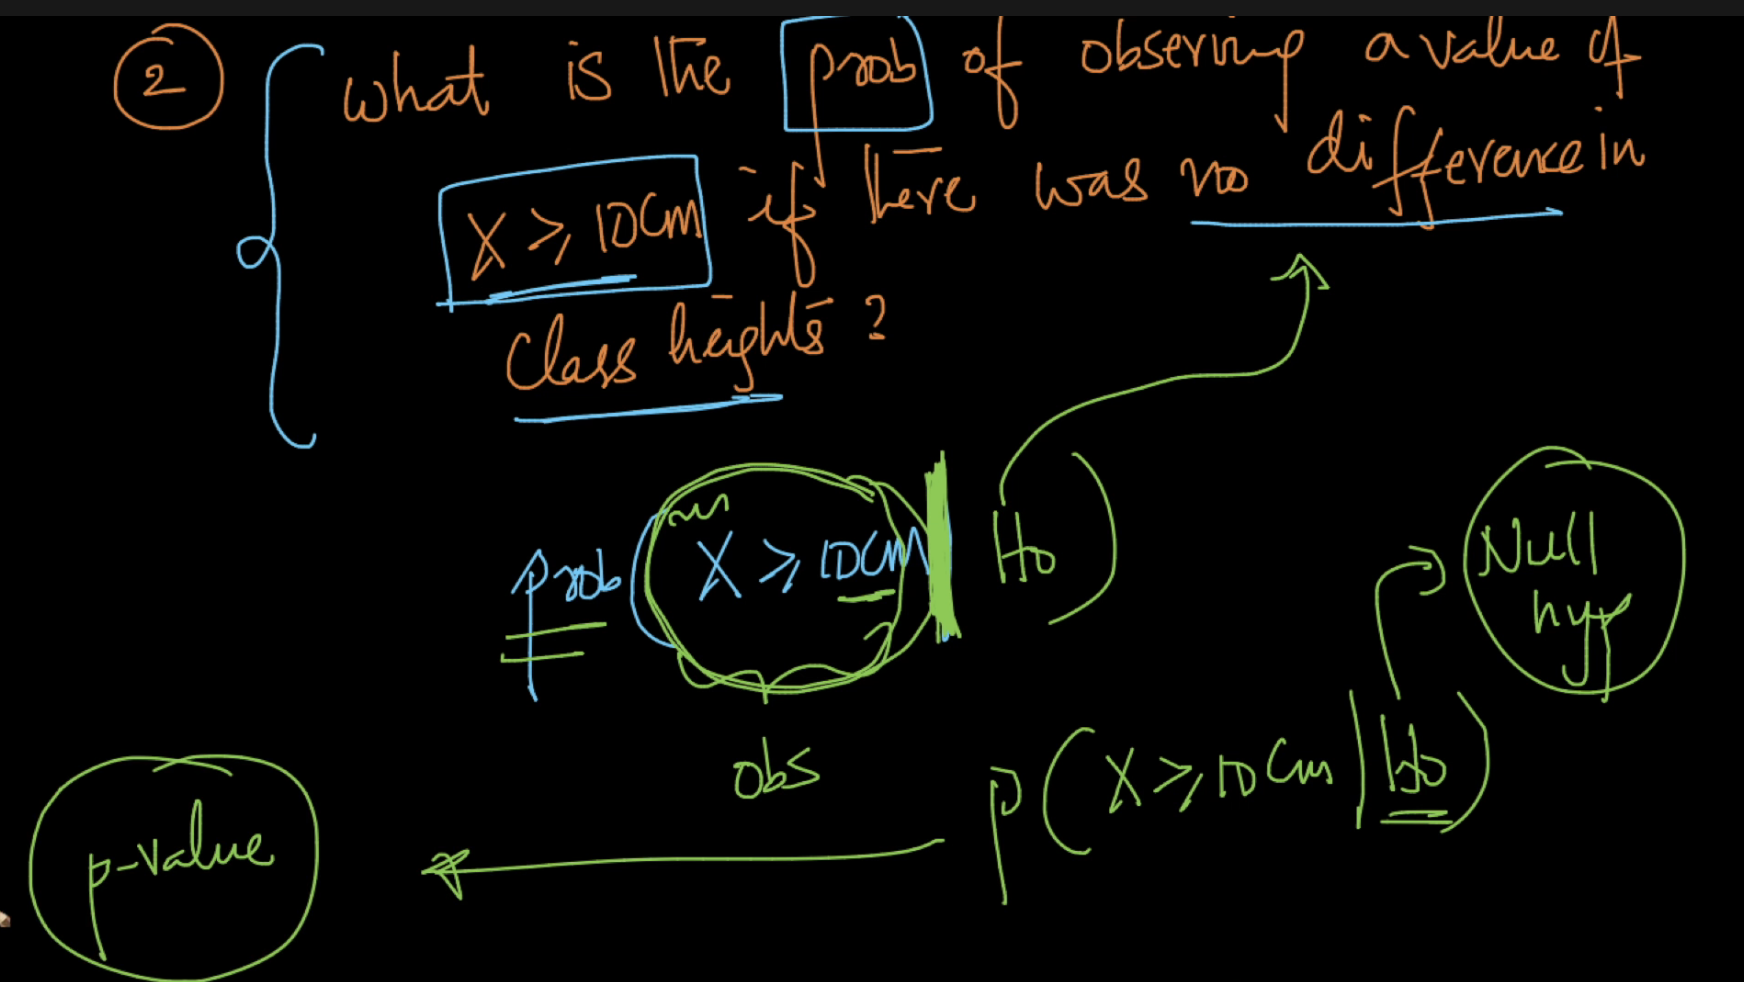 2 what is the prob of observing a value of
X ⩾ 10cm if there was no difference in
Class heights ?
prob ( X ⩾ 10cm | Ho )
Null
hyp
obs
p ( X ⩾ 10cm | Ho )
p-value